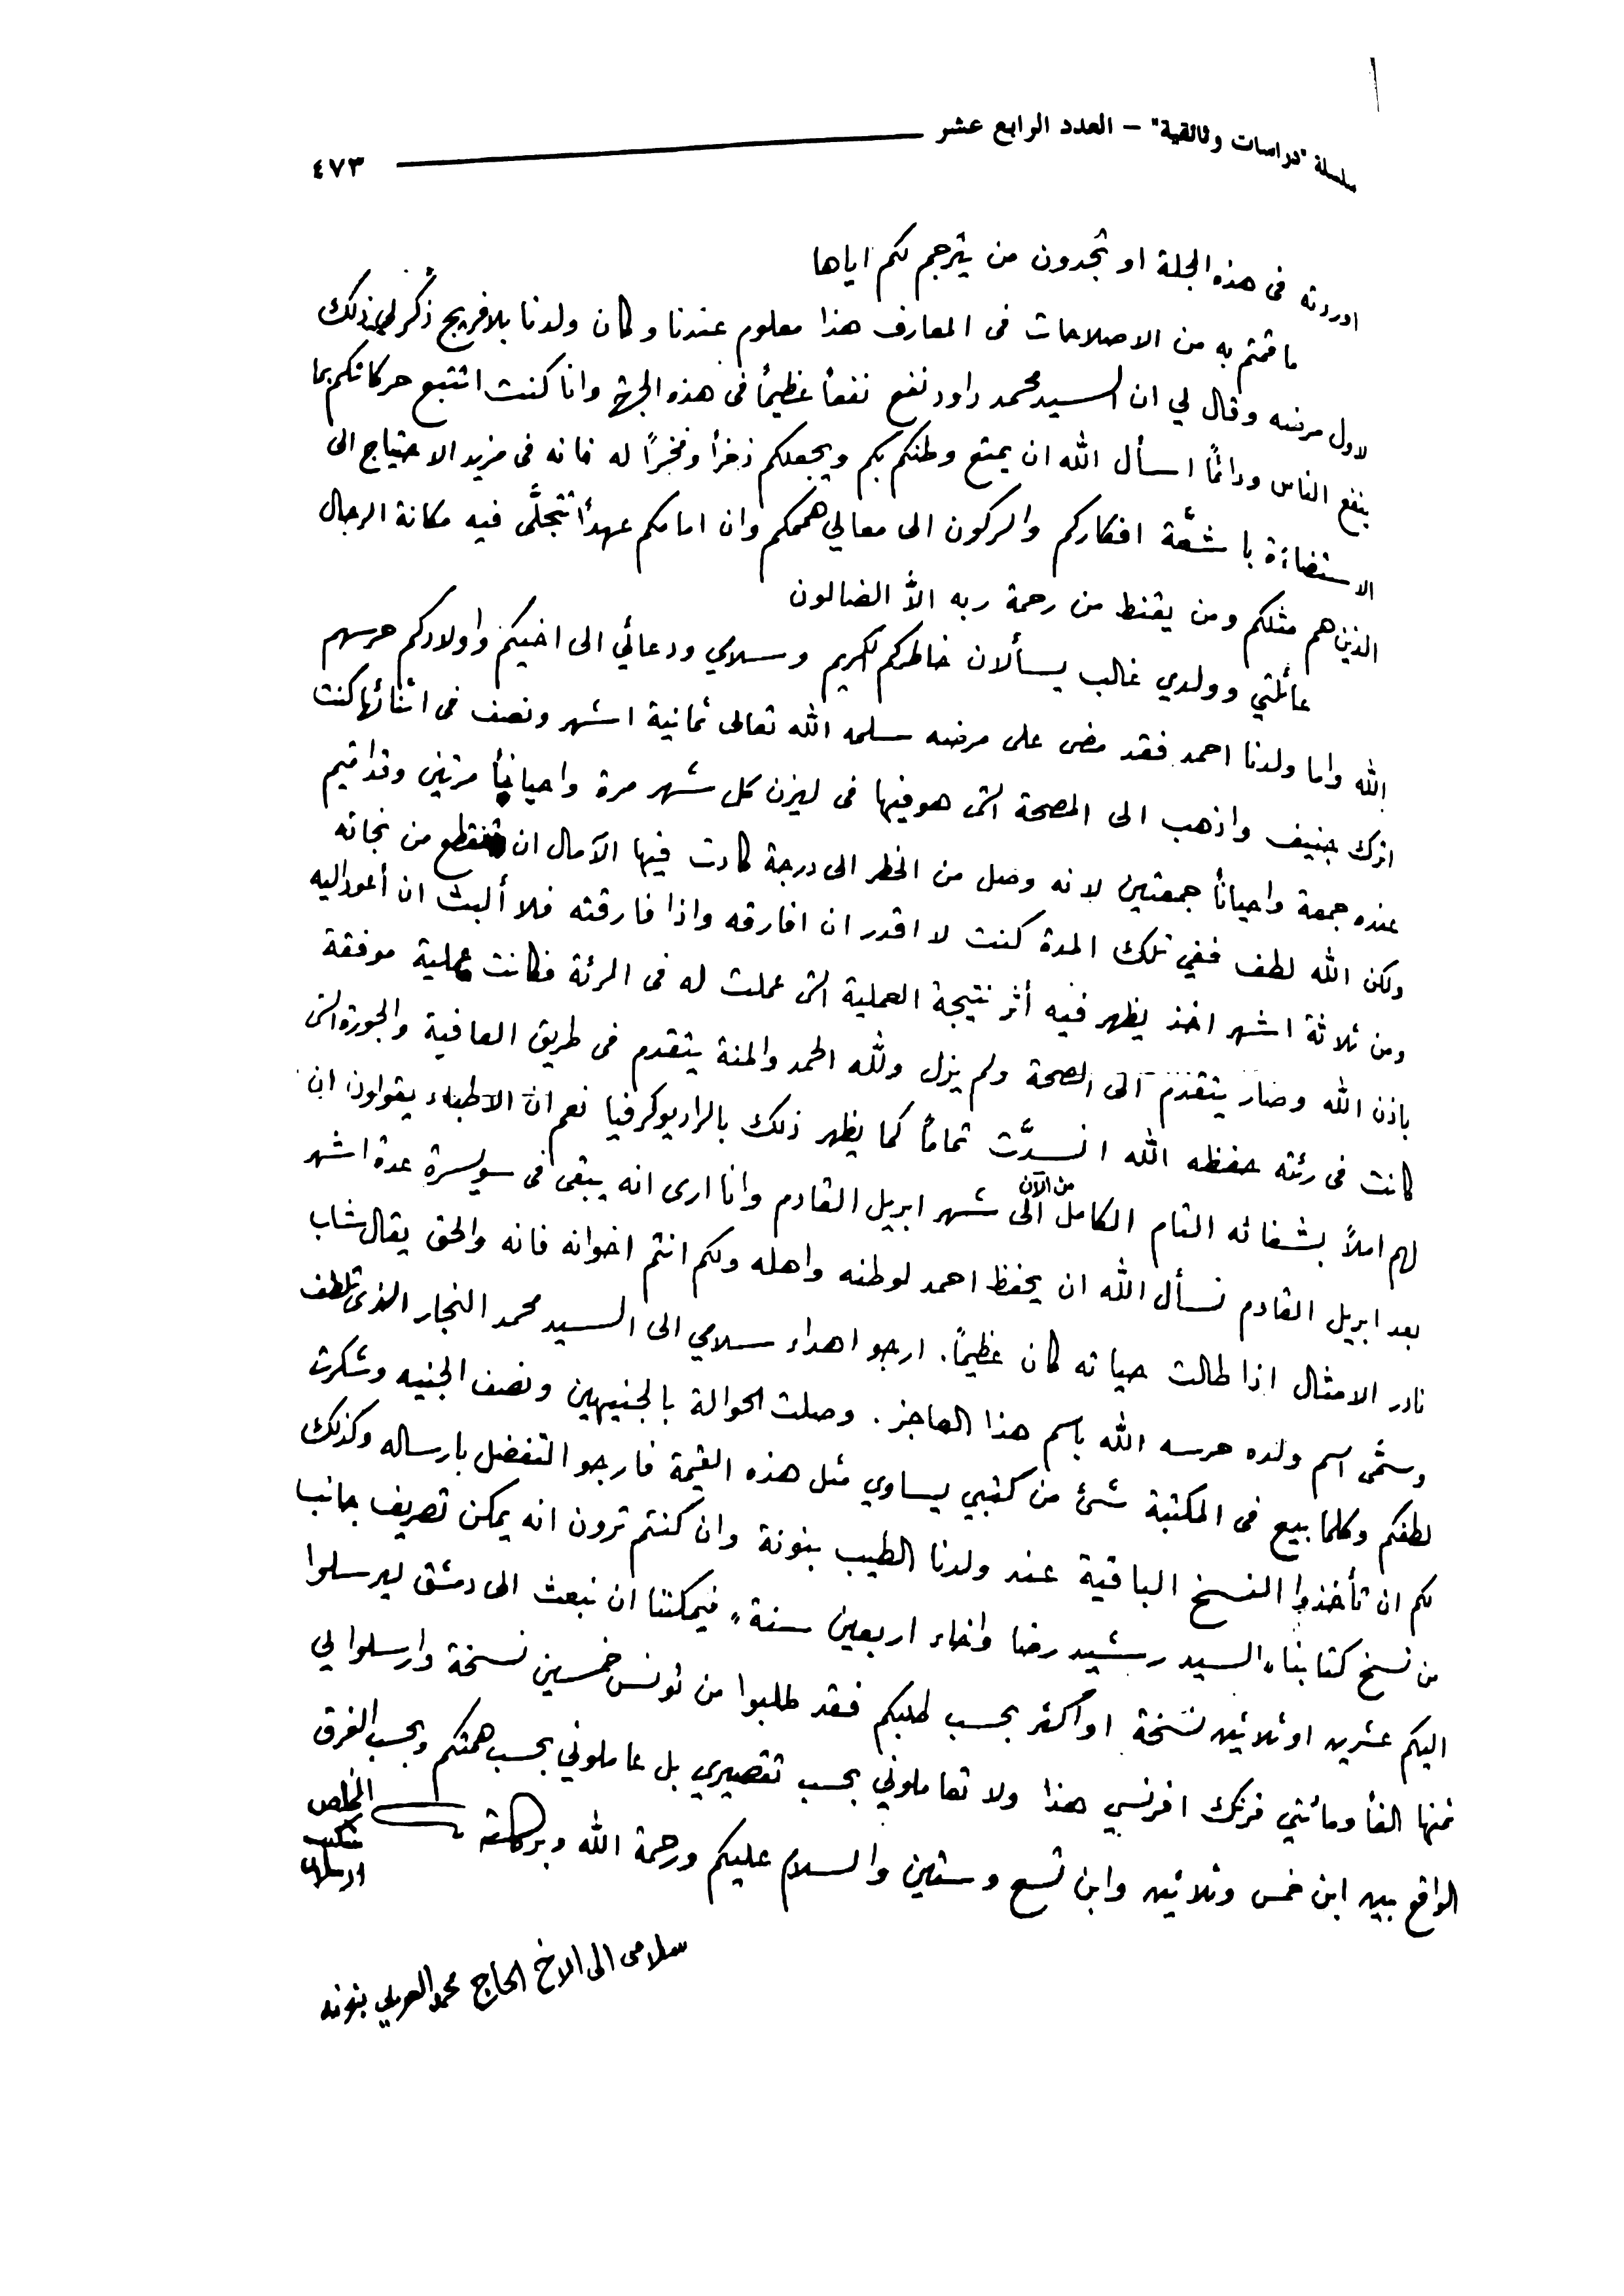 سلسلة "دراسات وثائقية" – العدد الرابع عشر
٤٧٣
اوردته فى هذه المجلة او تجدون من يترجم لكم اياها
ما قمتم به من الاصلاحات فى المعارف هذا معلوم عندنا وكان ولدنا بلافريج ذكر لي ذلك
لاول مرضه وقال لي ان السيد محمد داود نفع نفعاً عظيماً فى هذه وانا كنت اتتبع حركاتكم بما
ينفع الناس ودائماً اسأل الله ان يمتع وطنكم بكم ويجعلكم ذخراً وفخراً له فانه فى مزيد الاحتياج الى
الاستضاءة باشعّة افكاركم والركون الى معالي هممكم وان امامكم عهداً تتجلَّى فيه مكانة الرجال
الذين هم مثلكم ومن يقنط من رحمة ربه الاَّ الضالون
عائلتي وولدي غالب يسألان خاطركم الكريم وسلامي ودعائي الى اخيكم واولادكم حرسهم
الله واما ولدنا احمد فقد مضى على مرضه سلمه الله تعالى ثمانية اشهر ونصف فى اثنائها كنت
اترك جنيف واذهب الى المصحة التى هو فيها فى ليزن كل شهر مرة واحياناً مرتين وقد اقيم
عنده جمعة واحياناً جمعتين لانه وصل من الخطر الى درجة كادت فيها الآمال ان تنقطع من نجاته
ولكن الله لطف ففي تلك المدة كنت لا اقدر ان افارقه واذا فارقته فلا ألبث ان أعود اليه
ومن ثلاثة اشهر اخذ يظهر فيه أثر نتيجة العملية التى عملت له فى الرئة فكانت عملية موفقة
باذن الله وصار يتقدم الى الصحة ولم يزل ولله الحمد والمنة يتقدم فى طريق العافية والجورة التى
كانت فى رئته حفظه الله انسدَّت تماماً كما يظهر ذلك بالراديوكرفيا نعم ان الاطباء يقولون ان
لهم املاً بشفائه التام الكامل من الآن الى شهر ابريل القادم وانا ارى انه يبقى فى سويسرة عدة اشهر
بعد ابريل القادم نسأل الله ان يحفظ احمد لوطنه واهله ولكم انتم اخوانه فانه والحق يقال شاب
نادر الامثال اذا طالت حياته كان عظيماً. ارجو اهداء سلامي الى السيد محمد النجار الذى تلطف
وسمَّى اسم ولده حرسه الله باسم هذا العاجز. وصلت الحوالة بالجنيهين ونصف الجنيه وشكرت
لطفكم وكلما بيع فى المكتبة شئ من كتبي يساوي مثل هذه القيمة فارجو التفضل بارساله وكذلك
لكم ان تأخذوا النسخ الباقية عند ولدنا الطيب بنونة وان كنتم ترون انه يمكن تصريف جانب
من نسخ كتابنا "السيد رشيد رضا واخاء اربعين سنة" فيمكننا ان نبعث الى دمشق ليرسلوا
اليكم عشرين او ثلاثين نسخة او اكثر بحسب طلبكم فقد طلبوا من تونس خمسين نسخة وارسلوا لي
ثمنها الفاً ومائتي فرنك افرنسي هذا ولا تعاملوني بحسب تقصيري بل عاملوني بحسب همتكم وبحسب الفرق
الواقع بين ابن خمس وثلاثين وابن تسع وستين والسلام عليكم ورحمة الله وبركاته
المخلص
شكيب
ارسلان
سلامى الى الاخ الحاج محمد العربي بنونه